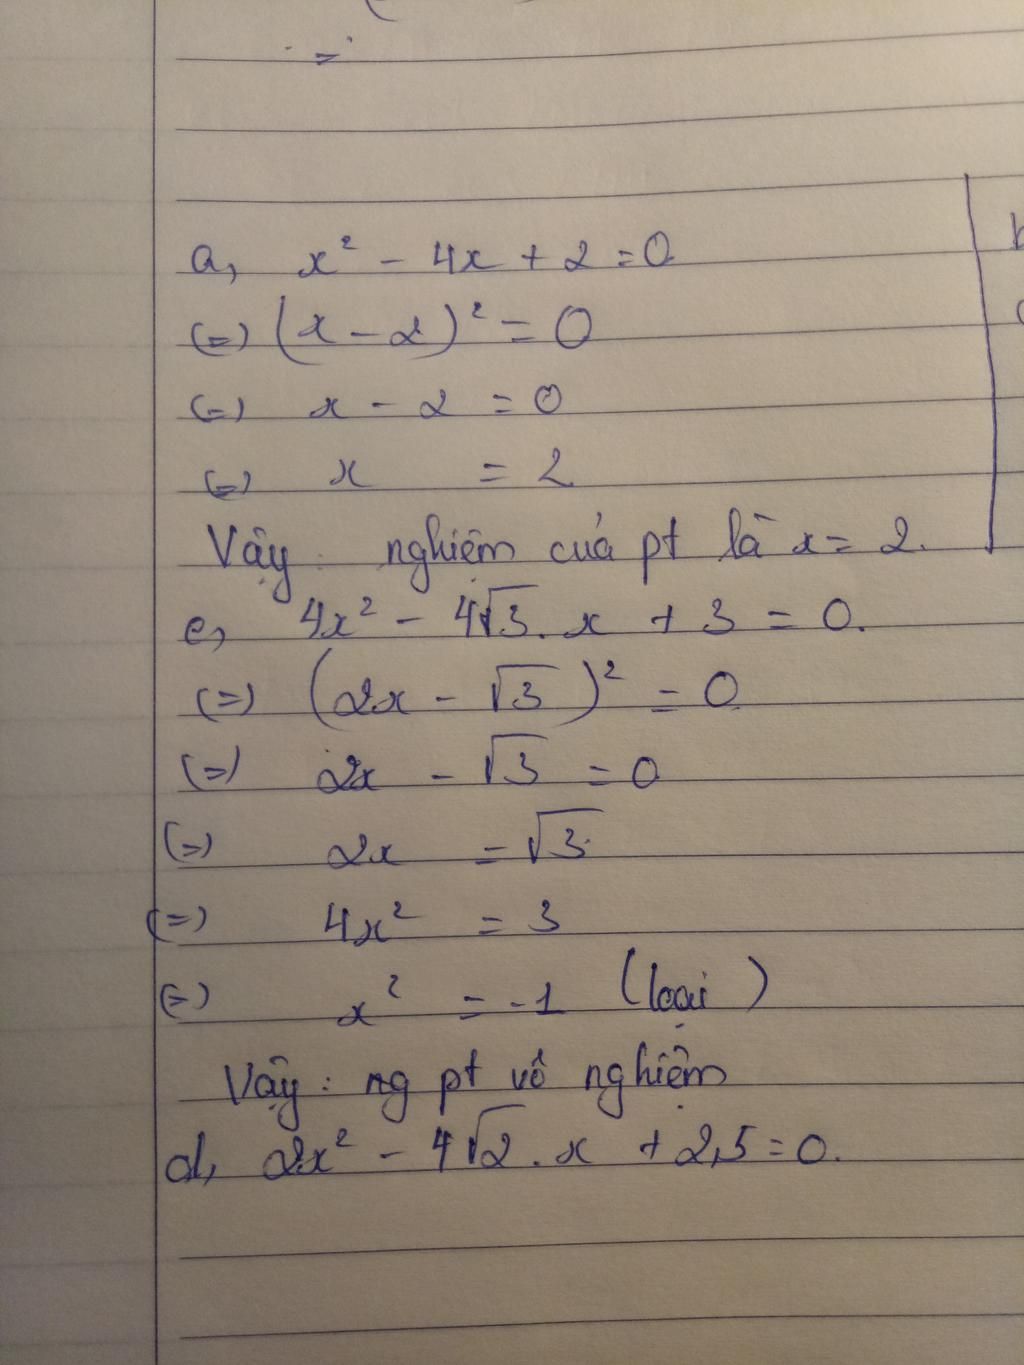 =
a, x² - 4x + 2 = 0
(=) (x - 2)² = 0
(=) x - 2 = 0
(=) x = 2
Vậy : nghiệm của pt là x = 2.
e, 4x² - 4√3. x + 3 = 0.
(=) (2x - √3)² = 0
(=) 2x - √3 = 0
(=) 2x = √3
(=) 4x² = 3
(=) x² = -1 (loại)
Vậy : ng pt vô nghiệm
d, 2x² - 4√2. x + 2,5 = 0.